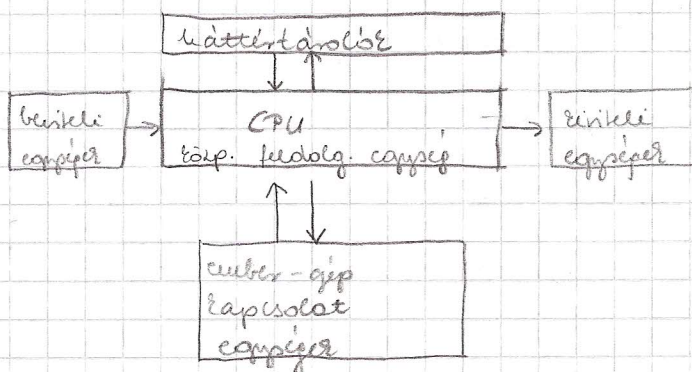 háttértárolók
beviteli
egységek
CPU
közp. feldolg. egység
kiviteli
egységek
ember-gép
kapcsolat
egységek